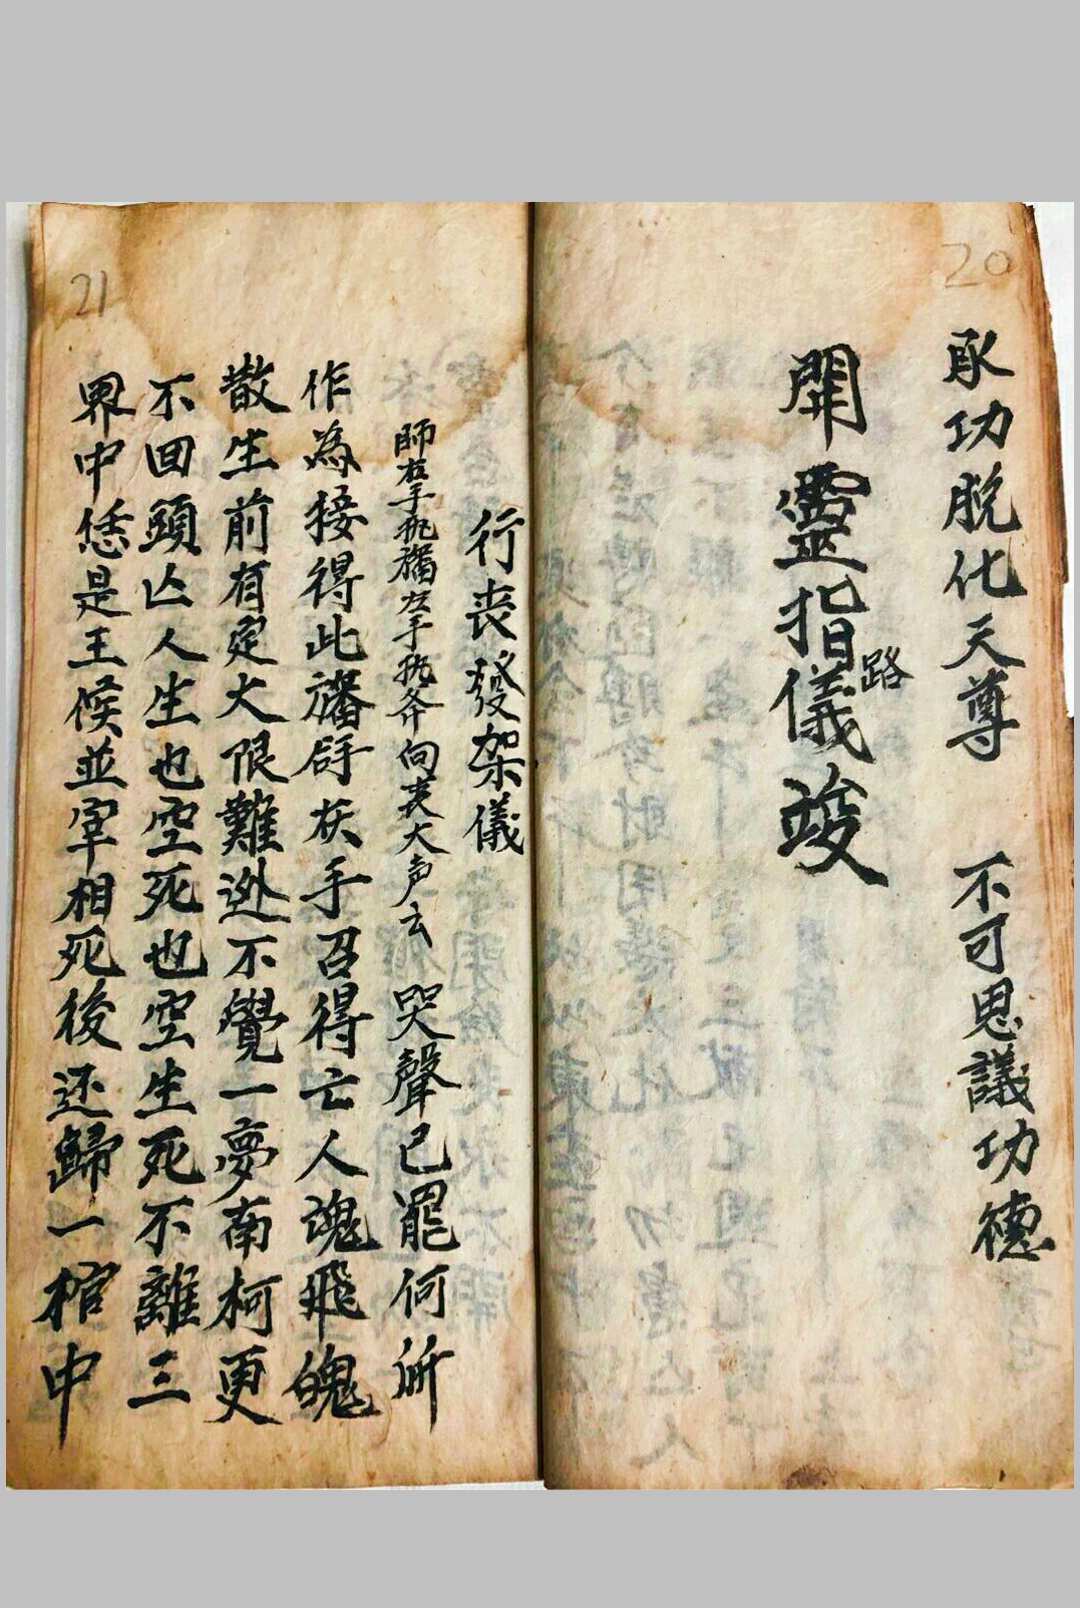 20
承功脱化天尊 不可思議功德
開靈指路儀竣
21
行丧發架儀
師右手執旛左手執斧向丧大声云 哭聲已罷何所
作為接得此旛 在手召得亡人魂飛魄
散生前有定大限難逃不覺一夢南柯更
不回頭亾人生也空死也空生死不離三
界中恁是王候並宰相死後还歸一棺中